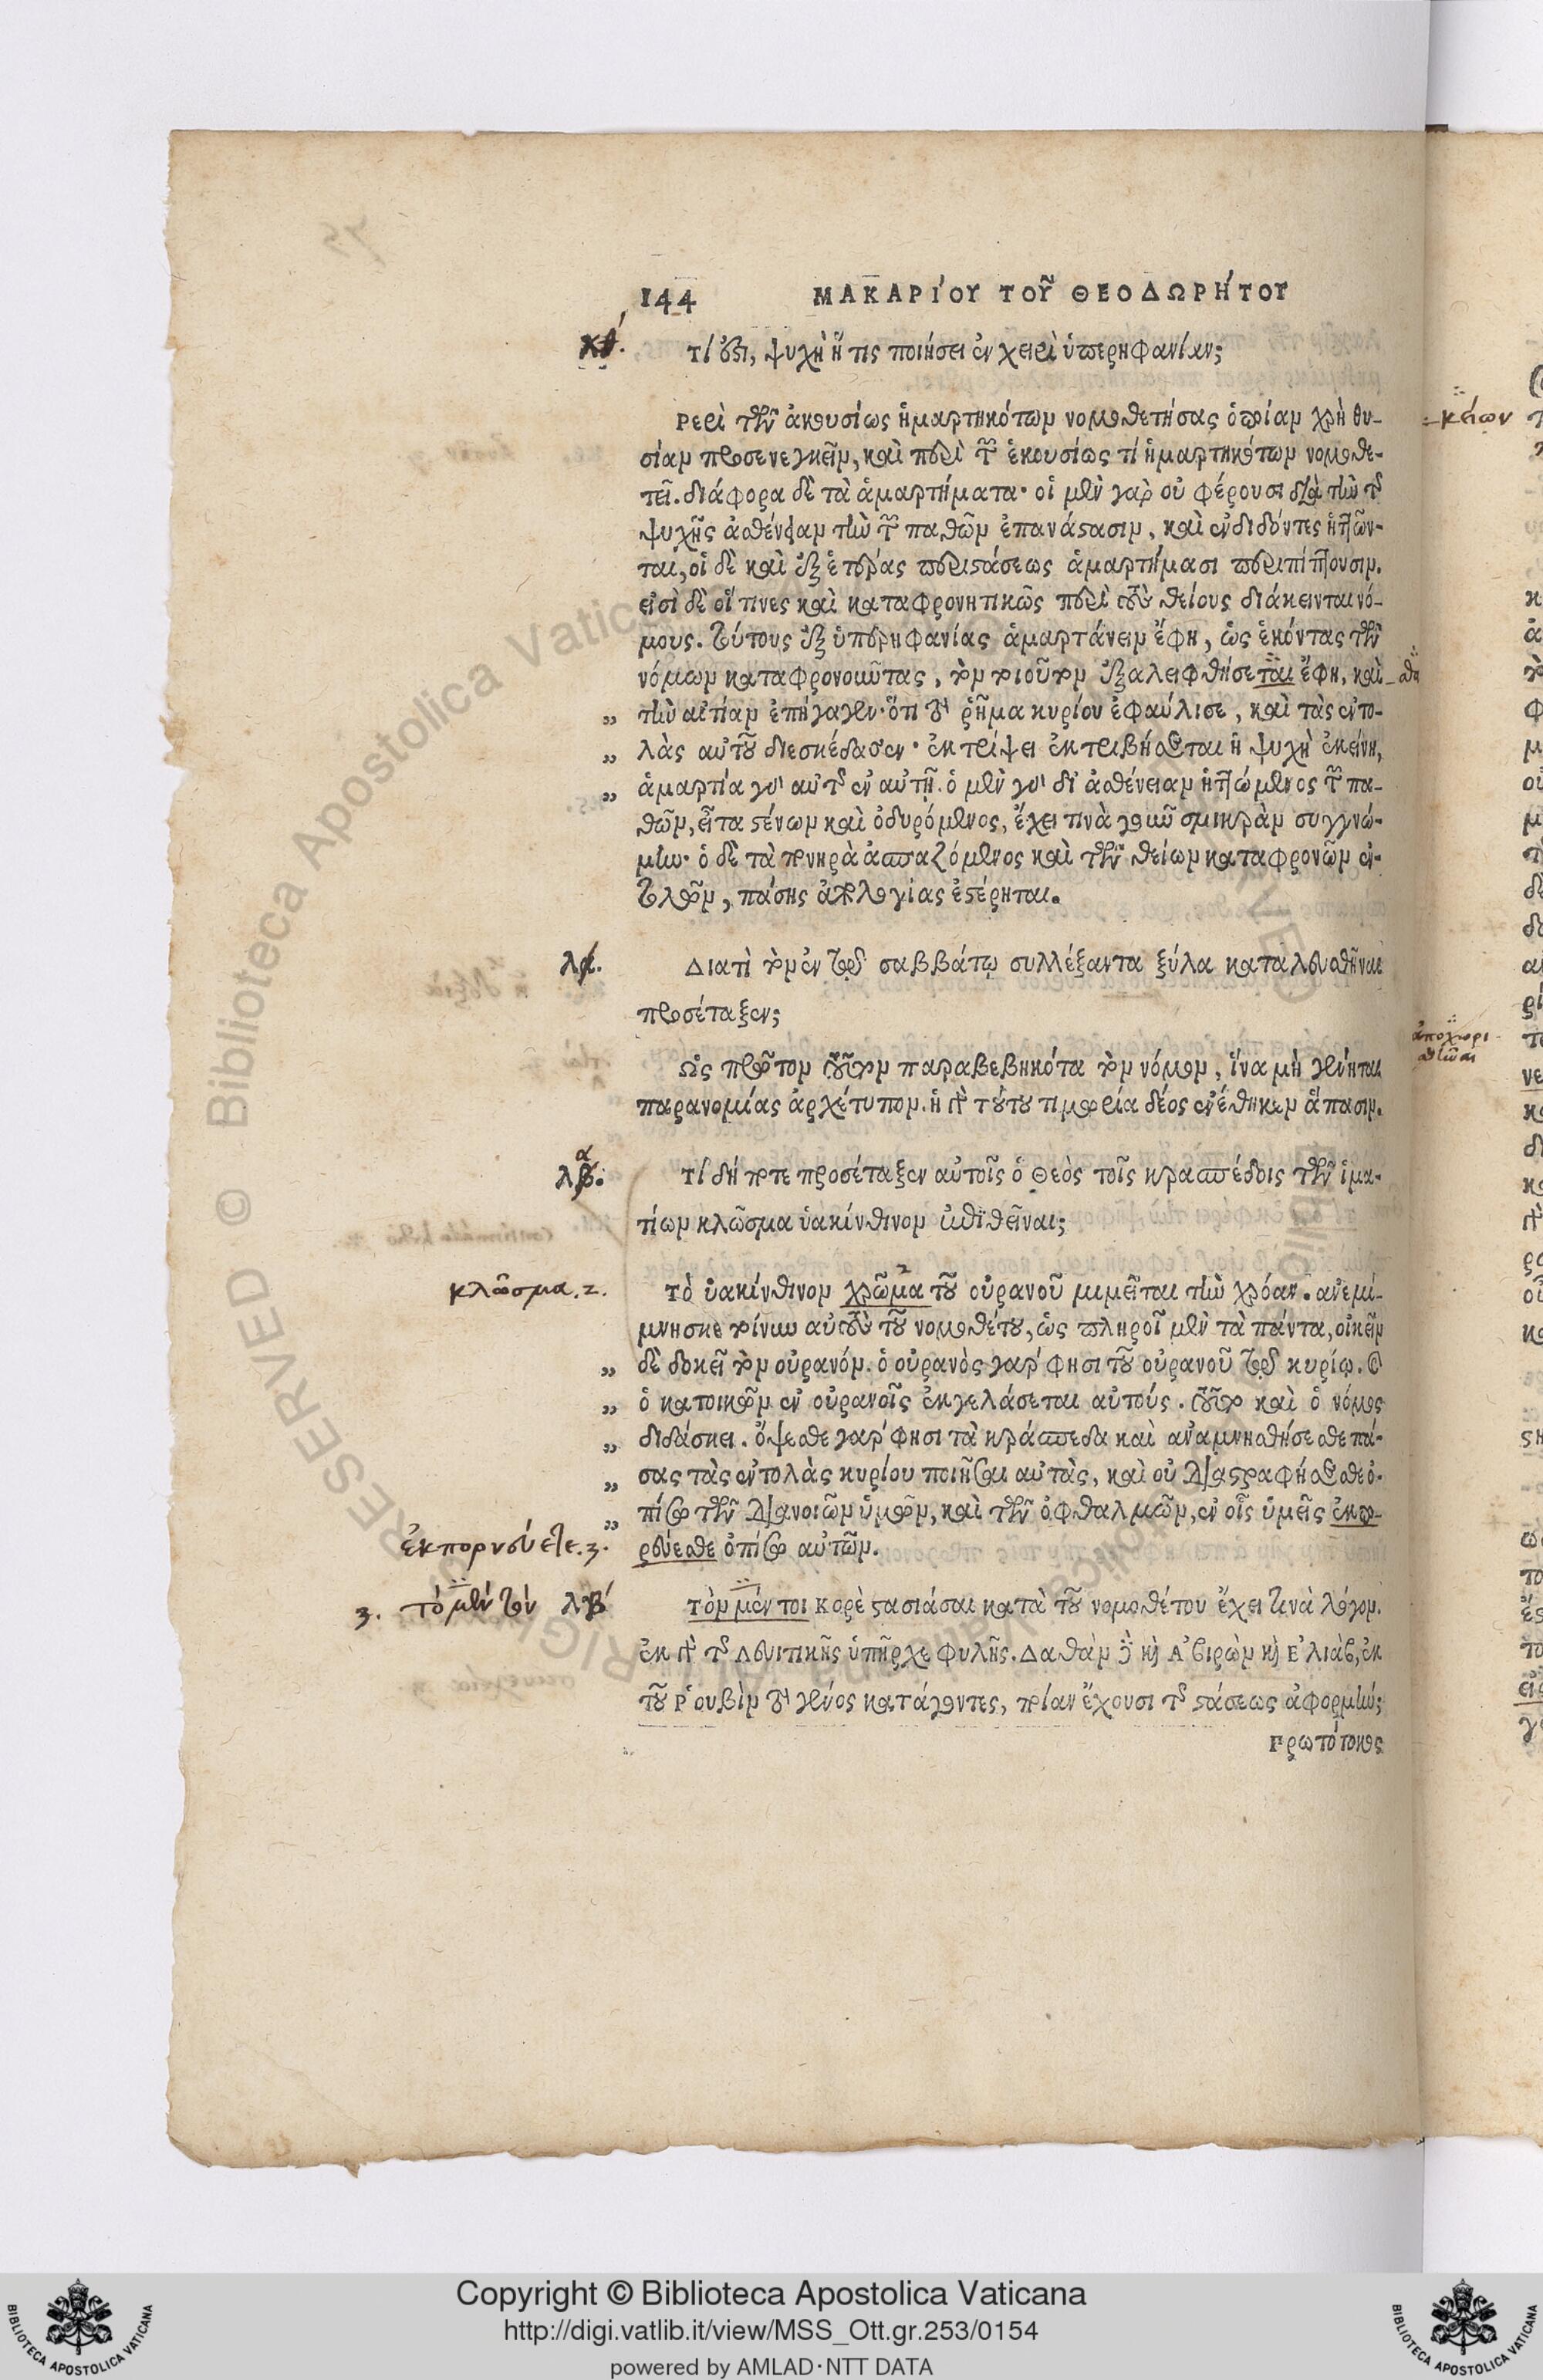 144 ΜΑΚΑΡΊΟΥ ΤΟΥ͂ ΘΕΟΔΩΡΉΤΟΥ
Τί ὅτι, ψυχὴ ἥ τις ποιήσει ἐν χειρὶ ὑπερηφανίαν;
Περὶ τῶν ἀκουσίως ἡμαρτηκότων νομοθετήσας ὁποίαν χρὴ θυ-
σίαν προσενεγκεῖν, καὶ περὶ τῶν ἑκουσίως τί ἡμαρτηκότων νομοθε-
τεῖ. διάφορα δὲ τὰ ἁμαρτήματα· οἱ μὲν γὰρ οὐ φέρουσι διὰ τὴν τῆς
ψυχῆς ἀσθένειαν τὴν τῶν παθῶν ἐπανάστασιν, καὶ ἐνδιδόντες ἡττῶν-
ται, οἱ δὲ καὶ ἐξ ἑτέρας περιστάσεως ἁμαρτήμασι περιπίπτουσιν.
εἰσὶ δὲ οἵ τινες καὶ καταφρονητικῶς περὶ τοὺς θείους διάκεινται νό-
μους. τούτους ἐξ ὑπερηφανίας ἁμαρτάνειν ἔφη, ὡς ἑκόντας τῶν
νόμων καταφρονοῦντας, τὸν τοιοῦτον ἐξαλειφθήσεται ἔφη, καὶ
„ τὴν αἰτίαν ἐπήγαγεν· ὅτι τὸ ῥῆμα κυρίου ἐφαύλισε, καὶ τὰς ἐντο-
„ λὰς αὐτοῦ διεσκέδασεν· ἐκτρίψει ἐκτριβήσεται ἡ ψυχὴ ἐκείνη,
„ ἁμαρτία γὰρ αὐτῆς ἐν αὐτῇ. ὁ μὲν γὰρ δι' ἀσθένειαν ἡττώμενος τῶν πα-
θῶν, εἶτα στένων καὶ ὀδυρόμενος, ἔχει τινὰ γοῦν σμικρὰν συγγνώ-
μην· ὁ δὲ τὰ πονηρὰ ἀσπαζόμενος καὶ τῶν θείων καταφρονῶν ἐν-
τολῶν, πάσης ἀπολογίας ἐστέρηται.
Διατὶ τὸν ἐν τῷ σαββάτῳ συλλέξαντα ξύλα καταλευσθῆναι
προσέταξεν;
Ὡς πρῶτον τοῦτον παραβεβηκότα τὸν νόμον, ἵνα μὴ γένηται
παρανομίας ἀρχέτυπον. ἡ γὰρ τούτου τιμωρία δέος ἐνέθηκεν ἅπασιν.
Τί δή ποτε προσέταξεν αὐτοῖς ὁ Θεὸς τοῖς κρασπέδοις τῶν ἱμα-
τίων κλῶσμα ὑακίνθινον ἐπιθεῖναι;
κλῶσμα. 2.
Τὸ ὑακίνθινον χρῶμα τοῦ οὐρανοῦ μιμεῖται τὴν χρόαν. ἀνεμί-
μνησκε τοίνυν αὐτοὺς τοῦ νομοθέτου, ὡς πληροῖ μὲν τὰ πάντα, οἰκεῖν
„ δὲ δοκεῖ τὸν οὐρανόν. ὁ οὐρανὸς γάρ φησι τοῦ οὐρανοῦ τῷ κυρίῳ. καὶ
„ ὁ κατοικῶν ἐν οὐρανοῖς ἐκγελάσεται αὐτούς. τοῦτο καὶ ὁ νόμος
„ διδάσκει. ὄψεσθε γάρ φησι τὰ κράσπεδα καὶ ἀναμνησθήσεσθε πά-
„ σας τὰς ἐντολὰς κυρίου ποιῆσαι αὐτὰς, καὶ οὐ διαστραφήσεσθε ὀ-
„ πίσω τῶν διανοιῶν ὑμῶν, καὶ τῶν ὀφθαλμῶν, ἐν οἷς ὑμεῖς ἐκπο-
ἐκπορνεύετε. 3.
ρνεύεσθε ὀπίσω αὐτῶν.
3. τὸ μὲν τὸν λβ́
Τὸν μέν τοι Κορὲ στασιάσαι κατὰ τοῦ νομοθέτου ἔχει τινὰ λόγον.
ἐκ γὰρ τῆς Λευιτικῆς ὑπῆρχε φυλῆς. Δαθὰν δὲ καὶ Ἀβιρὼν καὶ Ἐλιὰβ, ἐκ
τοῦ Ῥουβὶν τὸ γένος κατάγοντες, ποίαν ἔχουσι τῆς στάσεως ἀφορμήν;
Πρωτότοκος
Copyright © Biblioteca Apostolica Vaticana
http://digi.vatlib.it/view/MSS_Ott.gr.253/0154
powered by AMLAD·NTT DATA